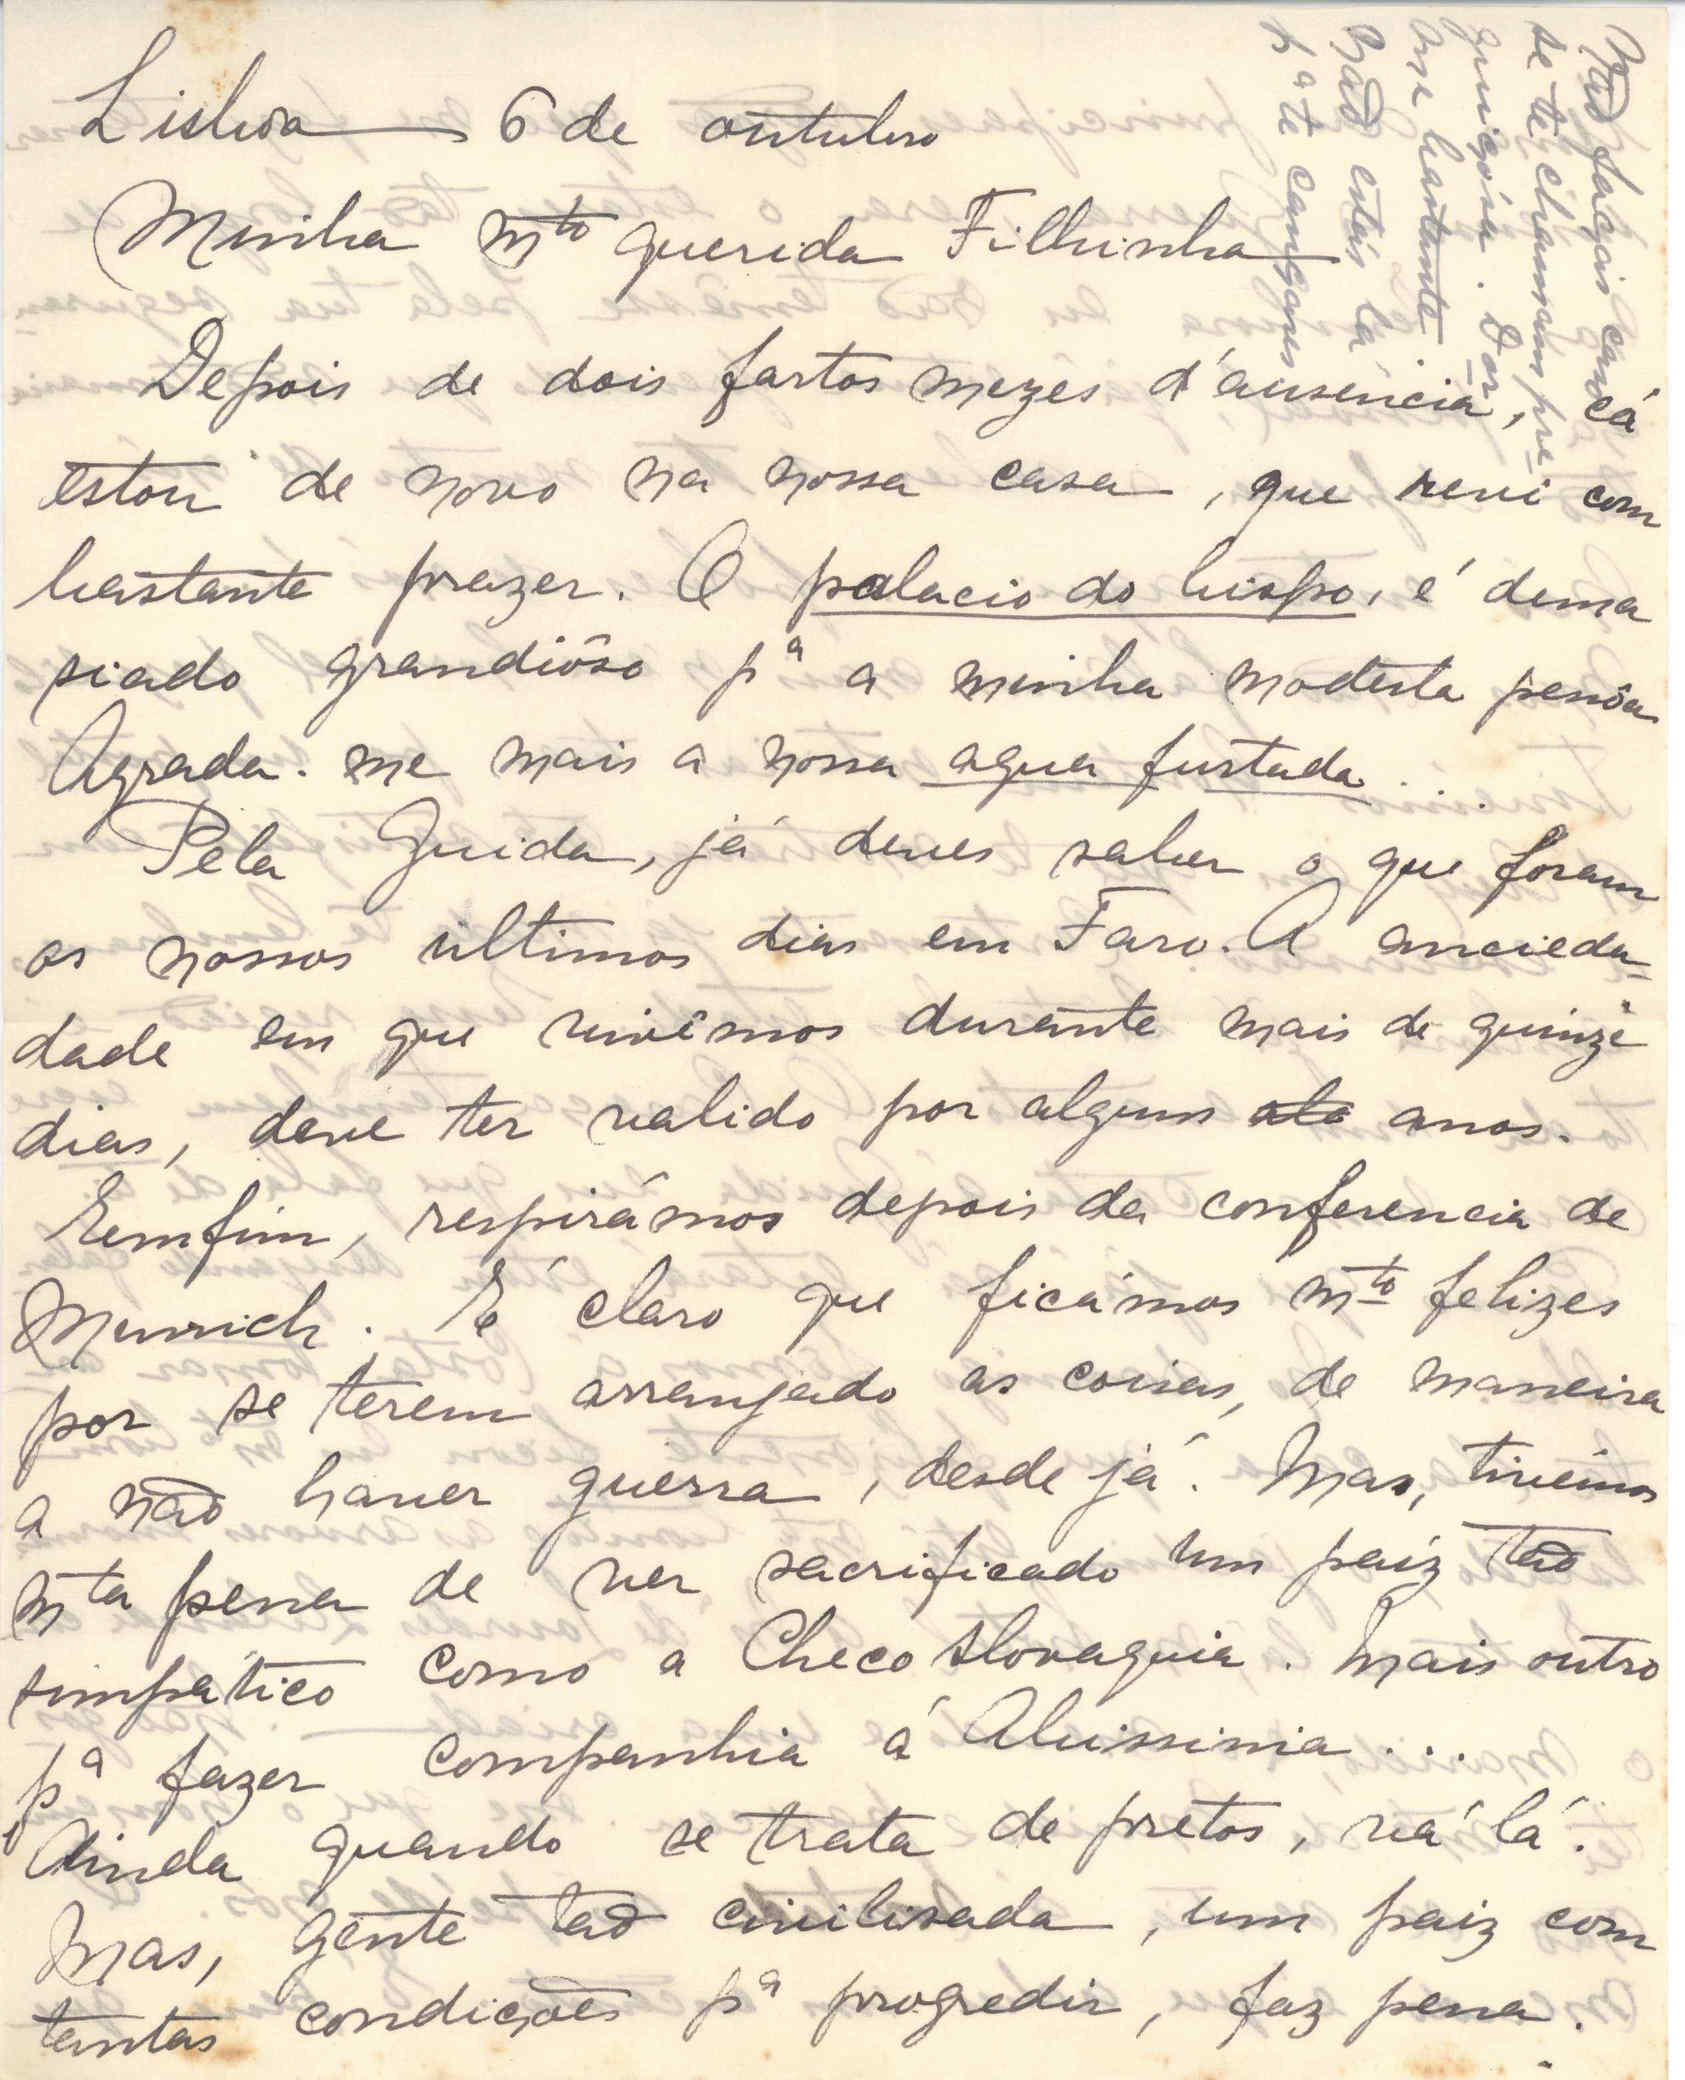 Lisboa 6 de outubro
Minha mto querida Filhinha
Depois de dois fartos mezes d'ausencia, cá
estou de novo na nossa casa, que revi com
bastante prazer. O palacio do bispo, é dema
siado grandiôso pa a minha modesta pessôa
Agrada-me mais a nossa agua furtada...
Pela Guida, já deves saber o que foram
os nossos ultimos dias em Faro. A ancieda-
dade em que vivêmos durante mais de quinze
dias, deve ter valido por alguns anos.
Emfim, respirámos depois da conferencia de
Munich. É claro que ficámos mto felizes
por se terem arranjado as coisas, de maneira
a não haver guerra, desde já. Mas, tivémos
mta pena de ver sacrificado um paiz tão
simpático como a Checo slovaquia. Mais outro
pa fazer companhia á Abissinia...
Ainda quando se trata de pretos, vá lá.
Mas, gente tão civilisada, um paiz com
tantas condições pa progredir, faz pena.
Não faças caso
se te chamam pre
guiçósa. Dor-
me bastante
Não estás lá
pa te cansares